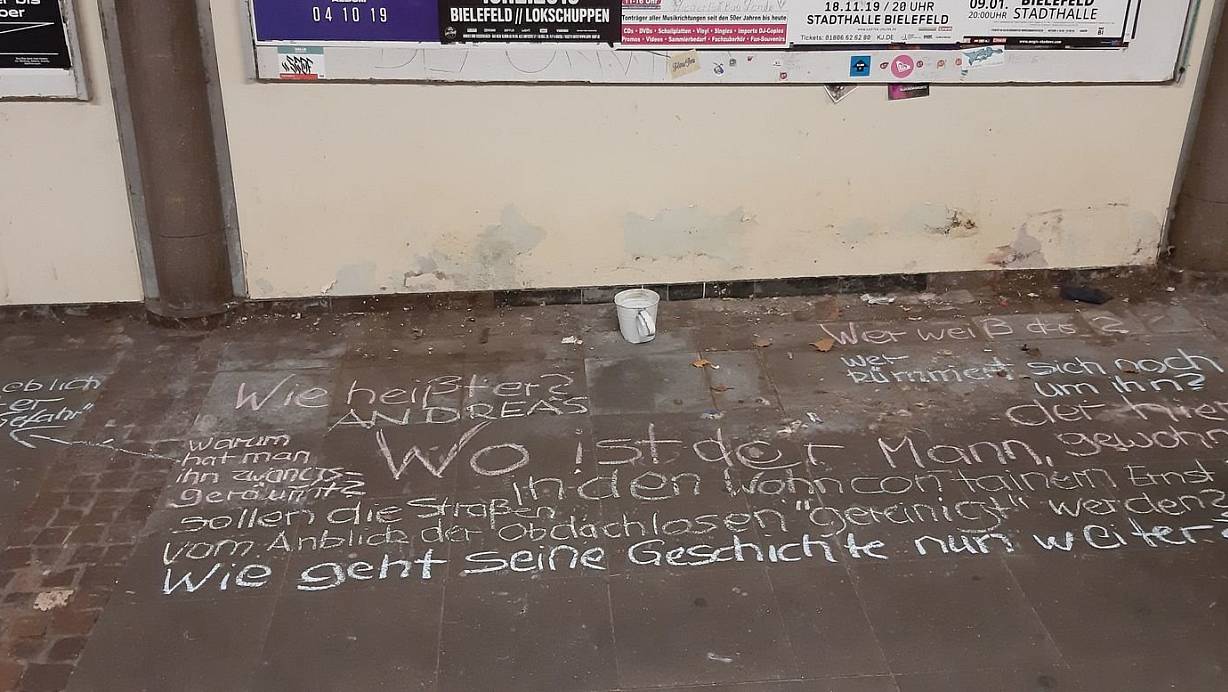 04 10 19
BIELEFELD // LOKSCHUPPEN
Tonträger aller Musikrichtungen seit den 50er Jahren bis heute
CDs • DVDs • Schallplatten • Vinyl • Singles • Importe DJ-Copies
Promos • Videos • Sammlerbedarf • Fachzubehör • Fan-Souvenirs
18.11.19 / 20 UHR
STADTHALLE BIELEFELD
09.01. BIELEFELD
20:00UHR STADTHALLE
Wer weiß das?
wer
kümmert sich noch
um ihn?
eblich
er
Gefahr"
Wie heißt er?
ANDREAS
warum
hat man
ihn zwangs=
geräumt?
Wo ist der Mann, der hier
gewohn
In den Wohncontainern Ernst
sollen die Straßen
vom Anblick der Obdachlosen "gereinigt" werden?
Wie geht seine Geschichte nun weiter?